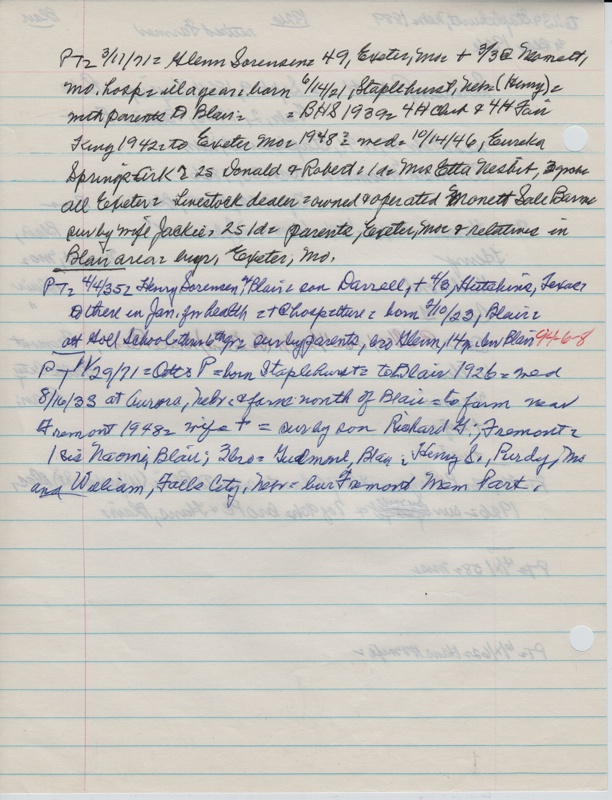 PT= 3/11/71= Glenn Sorensen= 49, Exeter, Mo= + 3/3 @ Monett,
Mo. hosp= ill a year= born 6/14/21, Staplehurst, Nebr (Henry)=
parents Blair= = BHS 1939= 4H Club & 4H Fair
King 1942= to Exeter Mo= 1948= wed= 10/14/46, Eureka
Springs Ark= 2s Donald & Robert= 1d= Mrs Etta Nesbit,
all Exeter= Livestock dealer= owned & operated Monett Sale Barn=
sur by wife Jackie= 2s 1d= parents, Exeter, Mo= & relatives in
Blair area= bur, Exeter, Mo.
PT= 4/4/35= Henry Sorensen, Blair= son Darrell, + 4/3, Hutchins, Texas=
there in Jan. for health = + @ hosp there= born 2/10/23, Blair=
att Holl School= sur by parents, bro Glenn, 14= bur Blair 94-6-8
P-T 11/29/71= Otto= born Staplehurst= to Blair 1926= wed
8/16/33 at Aurora, Nebr= & farm north of Blair= to farm near
Fremont 1948= wife + = sur by son Richard G., Fremont=
1 sis Naomi, Blair; 3bro= Gudmond, Blair, Henry S., Purdy, Mo
and William, Falls City, Nebr= bur Fremont Mem Park.